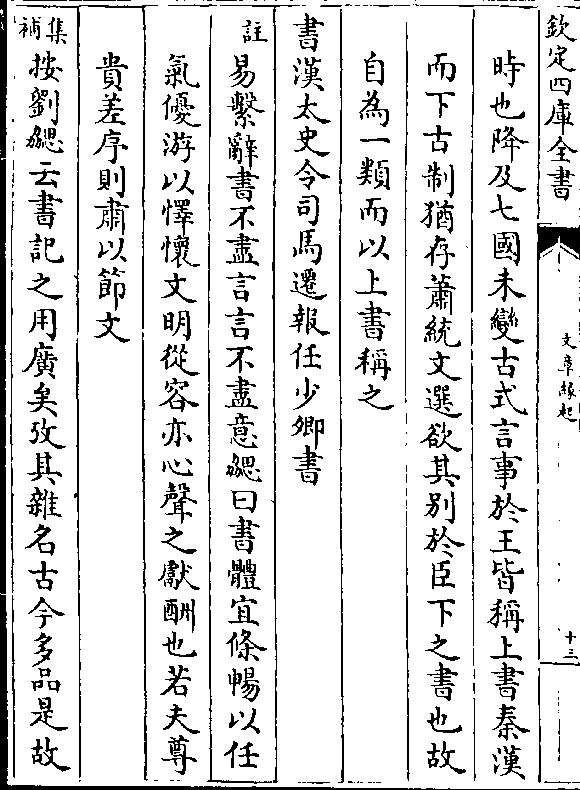 欽定四庫全書
文章緣起
十三
時也降及七國未變古式言事於王皆稱上書秦漢
而下古制猶存蕭統文選欲其別於臣下之書也故
自為一類而以上書稱之
書漢太史令司馬遷報任少卿書
註易繫辭書不盡言言不盡意勰曰書體宜條暢以任
氣優游以懌懷文明從容亦心聲之獻酬也若夫尊
貴差序則肅以節文
補集按劉勰云書記之用廣矣攷其雜名古今多品是故